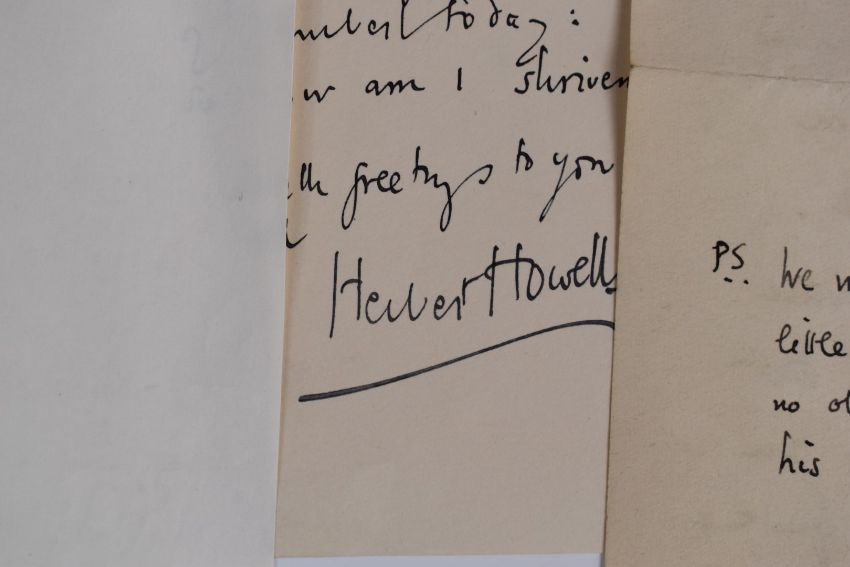 today:
am I shriven
greetings to you
Herbert Howells
PS
We
little
no
his